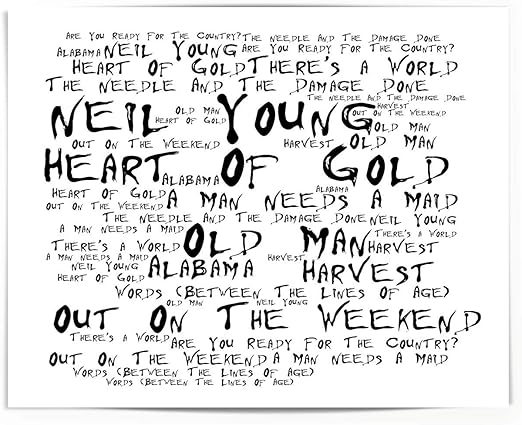 Are You Ready For The Country? The Needle And The Damage Done
Alabama Neil Young Are You Ready For The Country?
Heart Of Gold There's A World
The Needle And The Damage Done
The Needle And The Damage Done
Neil Young
Old Man
Heart Of Gold
Harvest
Out On The Weekend
Old Man
Out On The Weekend
Harvest Old Man
Heart Of Gold
Alabama
Alabama
Heart Of Gold
Out On The Weekend
A Man Needs A Maid
The Needle And The Damage Done Neil Young
A Man Needs A Maid
There's A World
Old Man
There's A World
Harvest
A Man Needs A Maid
Neil Young
Heart Of Gold
Alabama
Harvest
Harvest
Words (Between The Lines Of Age)
Old Man
Neil Young
Out On The Weekend
There's A World Are You Ready For The Country?
Out On The Weekend A Man Needs A Maid
Words (Between The Lines Of Age)
Words (Between The Lines Of Age)